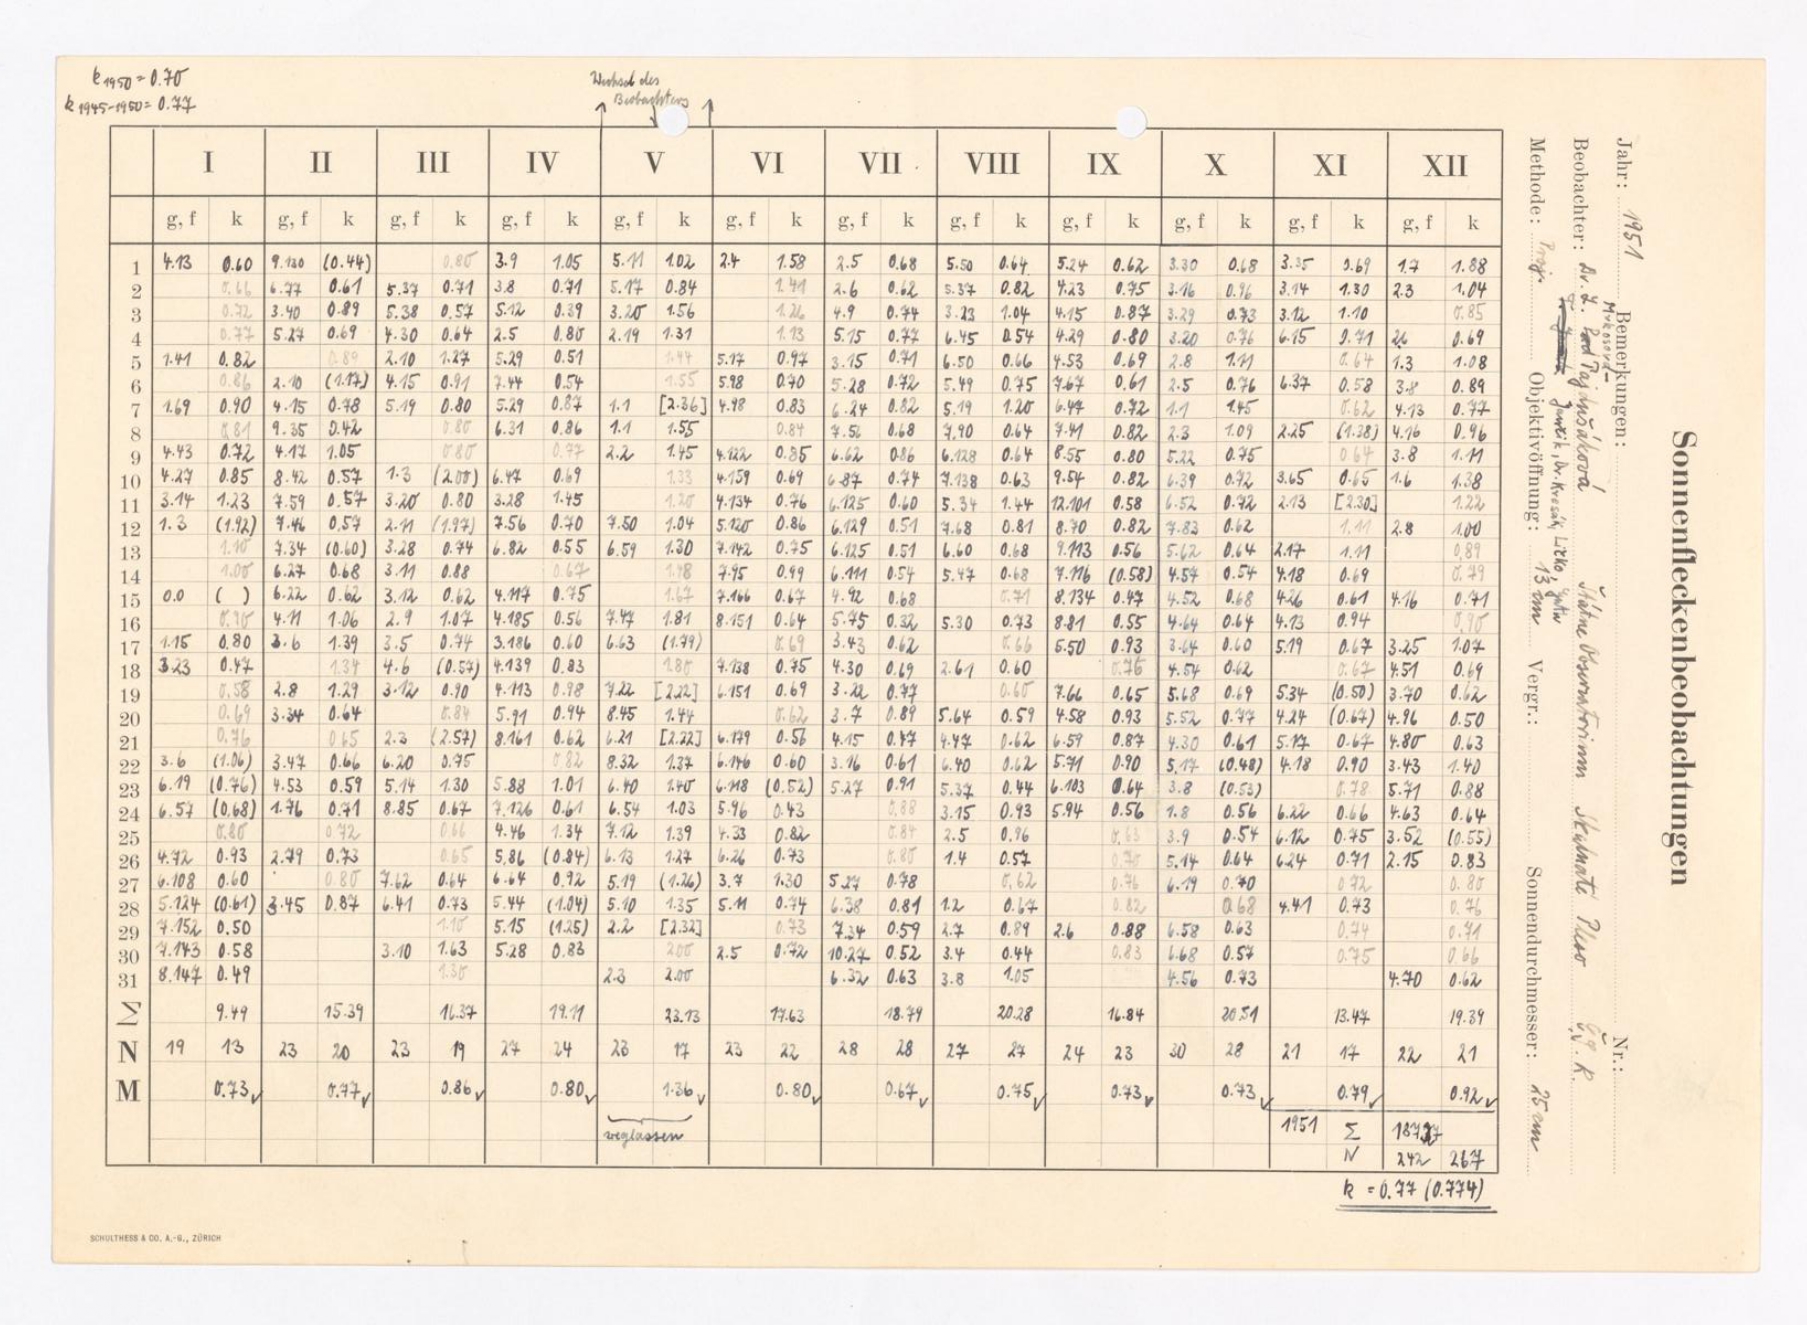 k 1950 = 0.70
k 1945-1950 = 0.77
Wechsel des
Beobachters
I II III IV V VI VII VIII IX X XI XII
g, f k g, f k g, f k g, f k g, f k g, f k g, f k g, f k g, f k g, f k g, f k g, f k
1 4.13 0.60 9.130 (0.44) 0.85 3.9 1.05 5.11 1.02 2.4 1.58 2.5 0.68 5.50 0.64 5.24 0.62 3.30 0.68 3.35 0.69 1.7 1.88
2 0.66 6.77 0.61 5.37 0.71 3.8 0.71 5.17 0.84 1.41 2.6 0.62 5.37 0.82 4.23 0.75 3.16 0.96 3.14 1.30 2.3 1.04
3 0.72 3.40 0.89 5.38 0.57 5.12 0.39 3.20 1.56 1.26 4.9 0.74 3.23 1.04 4.15 0.87 3.29 0.73 3.12 1.10 0.85
4 0.77 5.27 0.69 4.30 0.64 2.5 0.80 2.19 1.31 1.13 5.15 0.77 6.45 0.54 4.29 0.80 3.20 0.76 6.15 0.71 0.69
5 1.41 0.82 0.89 2.10 1.27 5.29 0.51 1.44 5.17 0.97 3.15 0.71 6.50 0.66 4.53 0.69 2.8 1.11 0.64 1.3 1.08
6 0.86 2.10 (1.17) 4.15 0.91 7.44 0.54 1.55 5.98 0.70 5.28 0.72 5.49 0.75 7.67 0.61 2.5 0.76 6.37 0.58 3.8 0.89
7 1.69 0.90 4.15 0.78 5.19 0.80 5.29 0.87 1.1 [2.36] 4.98 0.83 6.24 0.82 5.19 1.20 6.47 0.72 1.1 1.45 0.62 4.13 0.77
8 0.81 9.35 0.42 0.80 6.31 0.86 1.1 1.55 0.84 7.56 0.68 7.90 0.64 7.41 0.82 2.3 1.09 2.25 (1.38) 4.16 0.96
9 4.43 0.72 4.17 1.05 0.80 0.77 2.2 1.45 4.122 0.85 6.62 0.86 6.128 0.64 8.55 0.80 5.22 0.75 0.64 3.8 1.11
10 4.27 0.85 8.42 0.57 1.3 (2.00) 6.47 0.69 1.33 4.159 0.69 6.87 0.74 7.138 0.63 9.54 0.82 6.39 0.72 3.65 0.65 1.6 1.38
11 3.14 1.23 7.59 0.57 3.20 0.80 3.28 1.45 1.20 4.134 0.76 6.125 0.60 5.34 1.44 12.101 0.58 6.52 0.72 2.13 [2.30] 1.22
12 1.3 (1.92) 7.46 0.57 2.11 (1.97) 7.56 0.70 7.50 1.04 5.120 0.86 6.129 0.51 7.68 0.81 8.70 0.82 7.83 0.62 1.11 2.8 1.00
13 1.10 7.34 (0.60) 3.28 0.74 6.82 0.55 6.59 1.30 7.142 0.75 6.125 0.51 6.60 0.68 9.113 0.56 5.62 0.64 2.17 1.11 0.89
14 1.00 6.27 0.68 3.11 0.88 0.67 1.48 7.95 0.99 6.111 0.54 5.47 0.68 7.116 (0.58) 4.57 0.54 4.18 0.69 0.79
15 0.0 ( ) 6.22 0.62 3.12 0.62 4.117 0.75 1.67 7.166 0.67 4.92 0.68 0.71 8.134 0.47 4.52 0.68 4.26 0.61 4.16 0.71
16 0.90 4.11 1.06 2.9 1.07 4.185 0.56 7.47 1.81 8.151 0.64 5.75 0.32 5.30 0.73 8.81 0.55 4.64 0.64 4.13 0.94 0.90
17 1.15 0.80 3.6 1.39 3.5 0.74 3.186 0.60 6.63 (1.79) 0.69 3.43 0.62 0.66 5.50 0.93 3.64 0.60 5.19 0.67 3.25 1.07
18 3.23 0.47 1.34 4.6 (0.57) 4.139 0.83 1.80 7.138 0.75 4.30 0.69 2.61 0.60 0.76 4.54 0.62 0.67 4.51 0.69
19 0.58 2.8 1.29 3.12 0.90 4.113 0.98 7.22 [2.22] 6.151 0.69 3.22 0.77 0.60 7.66 0.65 5.68 0.69 5.34 (0.50) 3.70 0.62
20 0.69 3.34 0.64 0.84 5.91 0.94 8.45 1.44 0.62 3.7 0.89 5.64 0.59 4.58 0.93 5.52 0.77 4.24 (0.67) 4.96 0.50
21 0.76 0.65 2.3 (2.57) 8.161 0.62 6.21 [2.22] 6.179 0.56 4.15 0.47 4.47 0.62 6.59 0.87 4.30 0.61 5.17 0.67 4.80 0.63
22 3.6 (1.06) 3.47 0.66 6.20 0.75 0.82 8.32 1.37 6.146 0.60 3.16 0.61 6.40 0.62 5.71 0.90 5.17 (0.48) 4.18 0.90 3.43 1.40
23 6.19 (0.76) 4.53 0.59 5.14 1.30 5.88 1.01 6.40 1.40 6.118 (0.52) 5.27 0.91 5.37 0.44 6.103 0.64 3.8 (0.53) 0.78 5.71 0.88
24 6.57 (0.68) 1.76 0.71 8.85 0.67 7.126 0.61 6.54 1.03 5.96 0.43 0.88 3.15 0.93 5.94 0.56 1.8 0.56 6.22 0.66 4.63 0.64
25 0.80 0.72 0.66 4.46 1.34 7.12 1.39 4.33 0.82 0.84 2.5 0.96 0.63 3.9 0.54 6.12 0.75 3.52 (0.55)
26 4.72 0.93 2.79 0.73 0.65 5.86 (0.84) 6.13 1.27 6.26 0.73 0.80 1.4 0.57 0.70 5.14 0.64 6.24 0.71 2.15 0.83
27 6.108 0.60 0.80 7.62 0.64 6.64 0.92 5.19 (1.26) 3.7 1.30 5.27 0.78 0.62 0.76 6.19 0.70 0.72 0.80
28 5.124 (0.61) 3.45 0.87 6.41 0.73 5.44 (1.04) 5.10 1.35 5.11 0.74 6.38 0.81 1.2 0.67 0.82 0.68 4.41 0.73 0.76
29 7.152 0.50 1.10 5.15 (1.25) 2.2 [2.32] 0.73 7.34 0.59 2.7 0.89 2.6 0.88 6.58 0.63 0.74 0.71
30 7.143 0.58 3.10 1.63 5.28 0.83 2.00 2.5 0.72 10.27 0.52 3.4 0.44 0.83 6.68 0.57 0.75 0.66
31 8.147 0.49 1.30 2.3 2.00 6.32 0.63 3.8 1.05 4.56 0.73 4.70 0.62
Σ 9.49 15.39 16.37 19.11 23.13 17.63 18.79 20.28 16.84 20.51 13.47 19.39
N 19 13 23 20 23 19 27 24 23 17 23 22 28 28 27 27 24 23 30 28 21 17 22 21
M 0.73 0.77 0.86 0.80 1.36 0.80 0.67 0.75 0.73 0.73 0.79 0.92
weglassen
1951 Σ
N 242 267
k = 0.77 (0.774)
SCHULTHESS & CO. A.-G., ZÜRICH
Sonnenfleckenbeobachtungen
Jahr: 1951 Bemerkungen: Nr.:
Beobachter: Dr. L. Pajdušáková Štátne Observatórium Skalnaté Pleso Č.S.R.
Mrkosová-
Jančík, Dr. Kresák, Litko,
Methode: Proj. Objektivöffnung: 13 cm Vergr.: Sonnendurchmesser: 25 cm